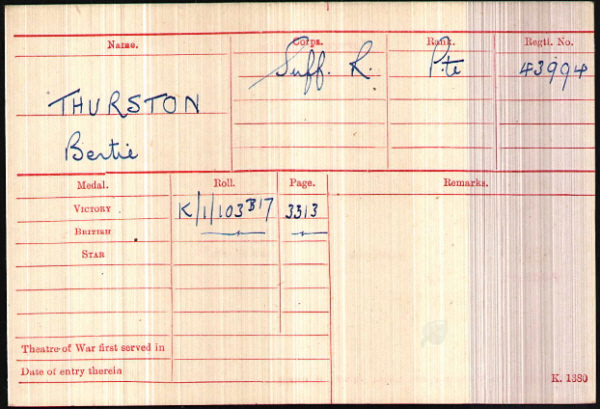 Name. Corps. Rank. Regtl. No.
Suff. R. Pte 43994
THURSTON
Bertie
Medal. Roll. Page. Remarks.
VICTORY K/1/103 B17 3313
BRITISH
STAR
Theatre of War first served in
Date of entry therein
K. 1380